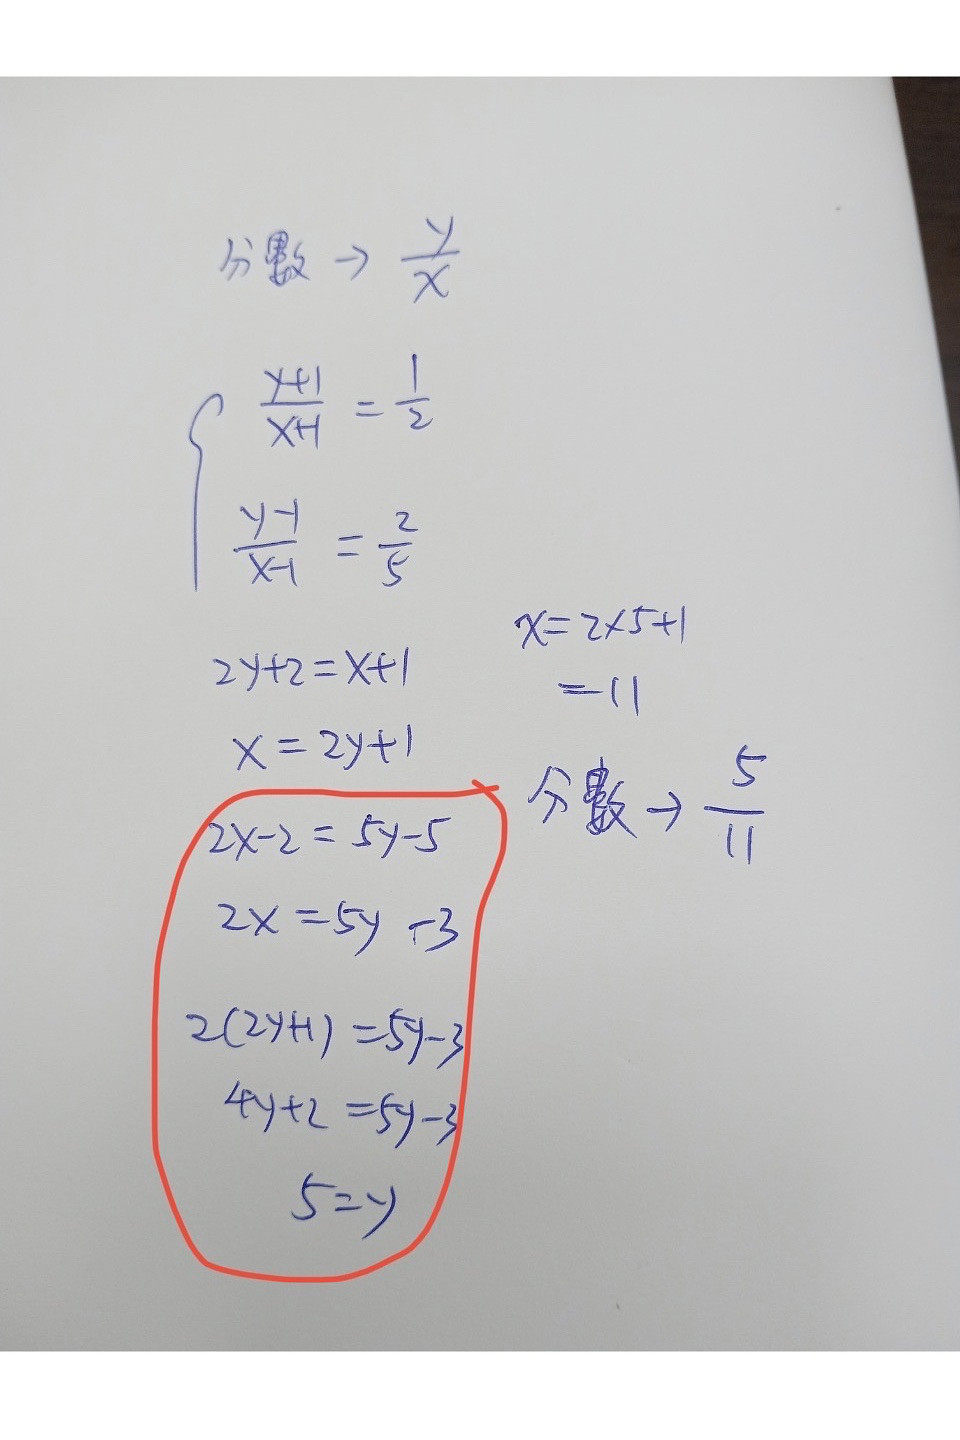 分數 → y/x
(y+1)/(x+1) = 1/2
(y-1)/(x-1) = 2/5
2y+2=x+1
x=2y+1
2x-2=5y-5
2x=5y-3
2(2y+1)=5y-3
4y+2=5y-3
5=y
x=2x5+1
=11
分數 → 5/11